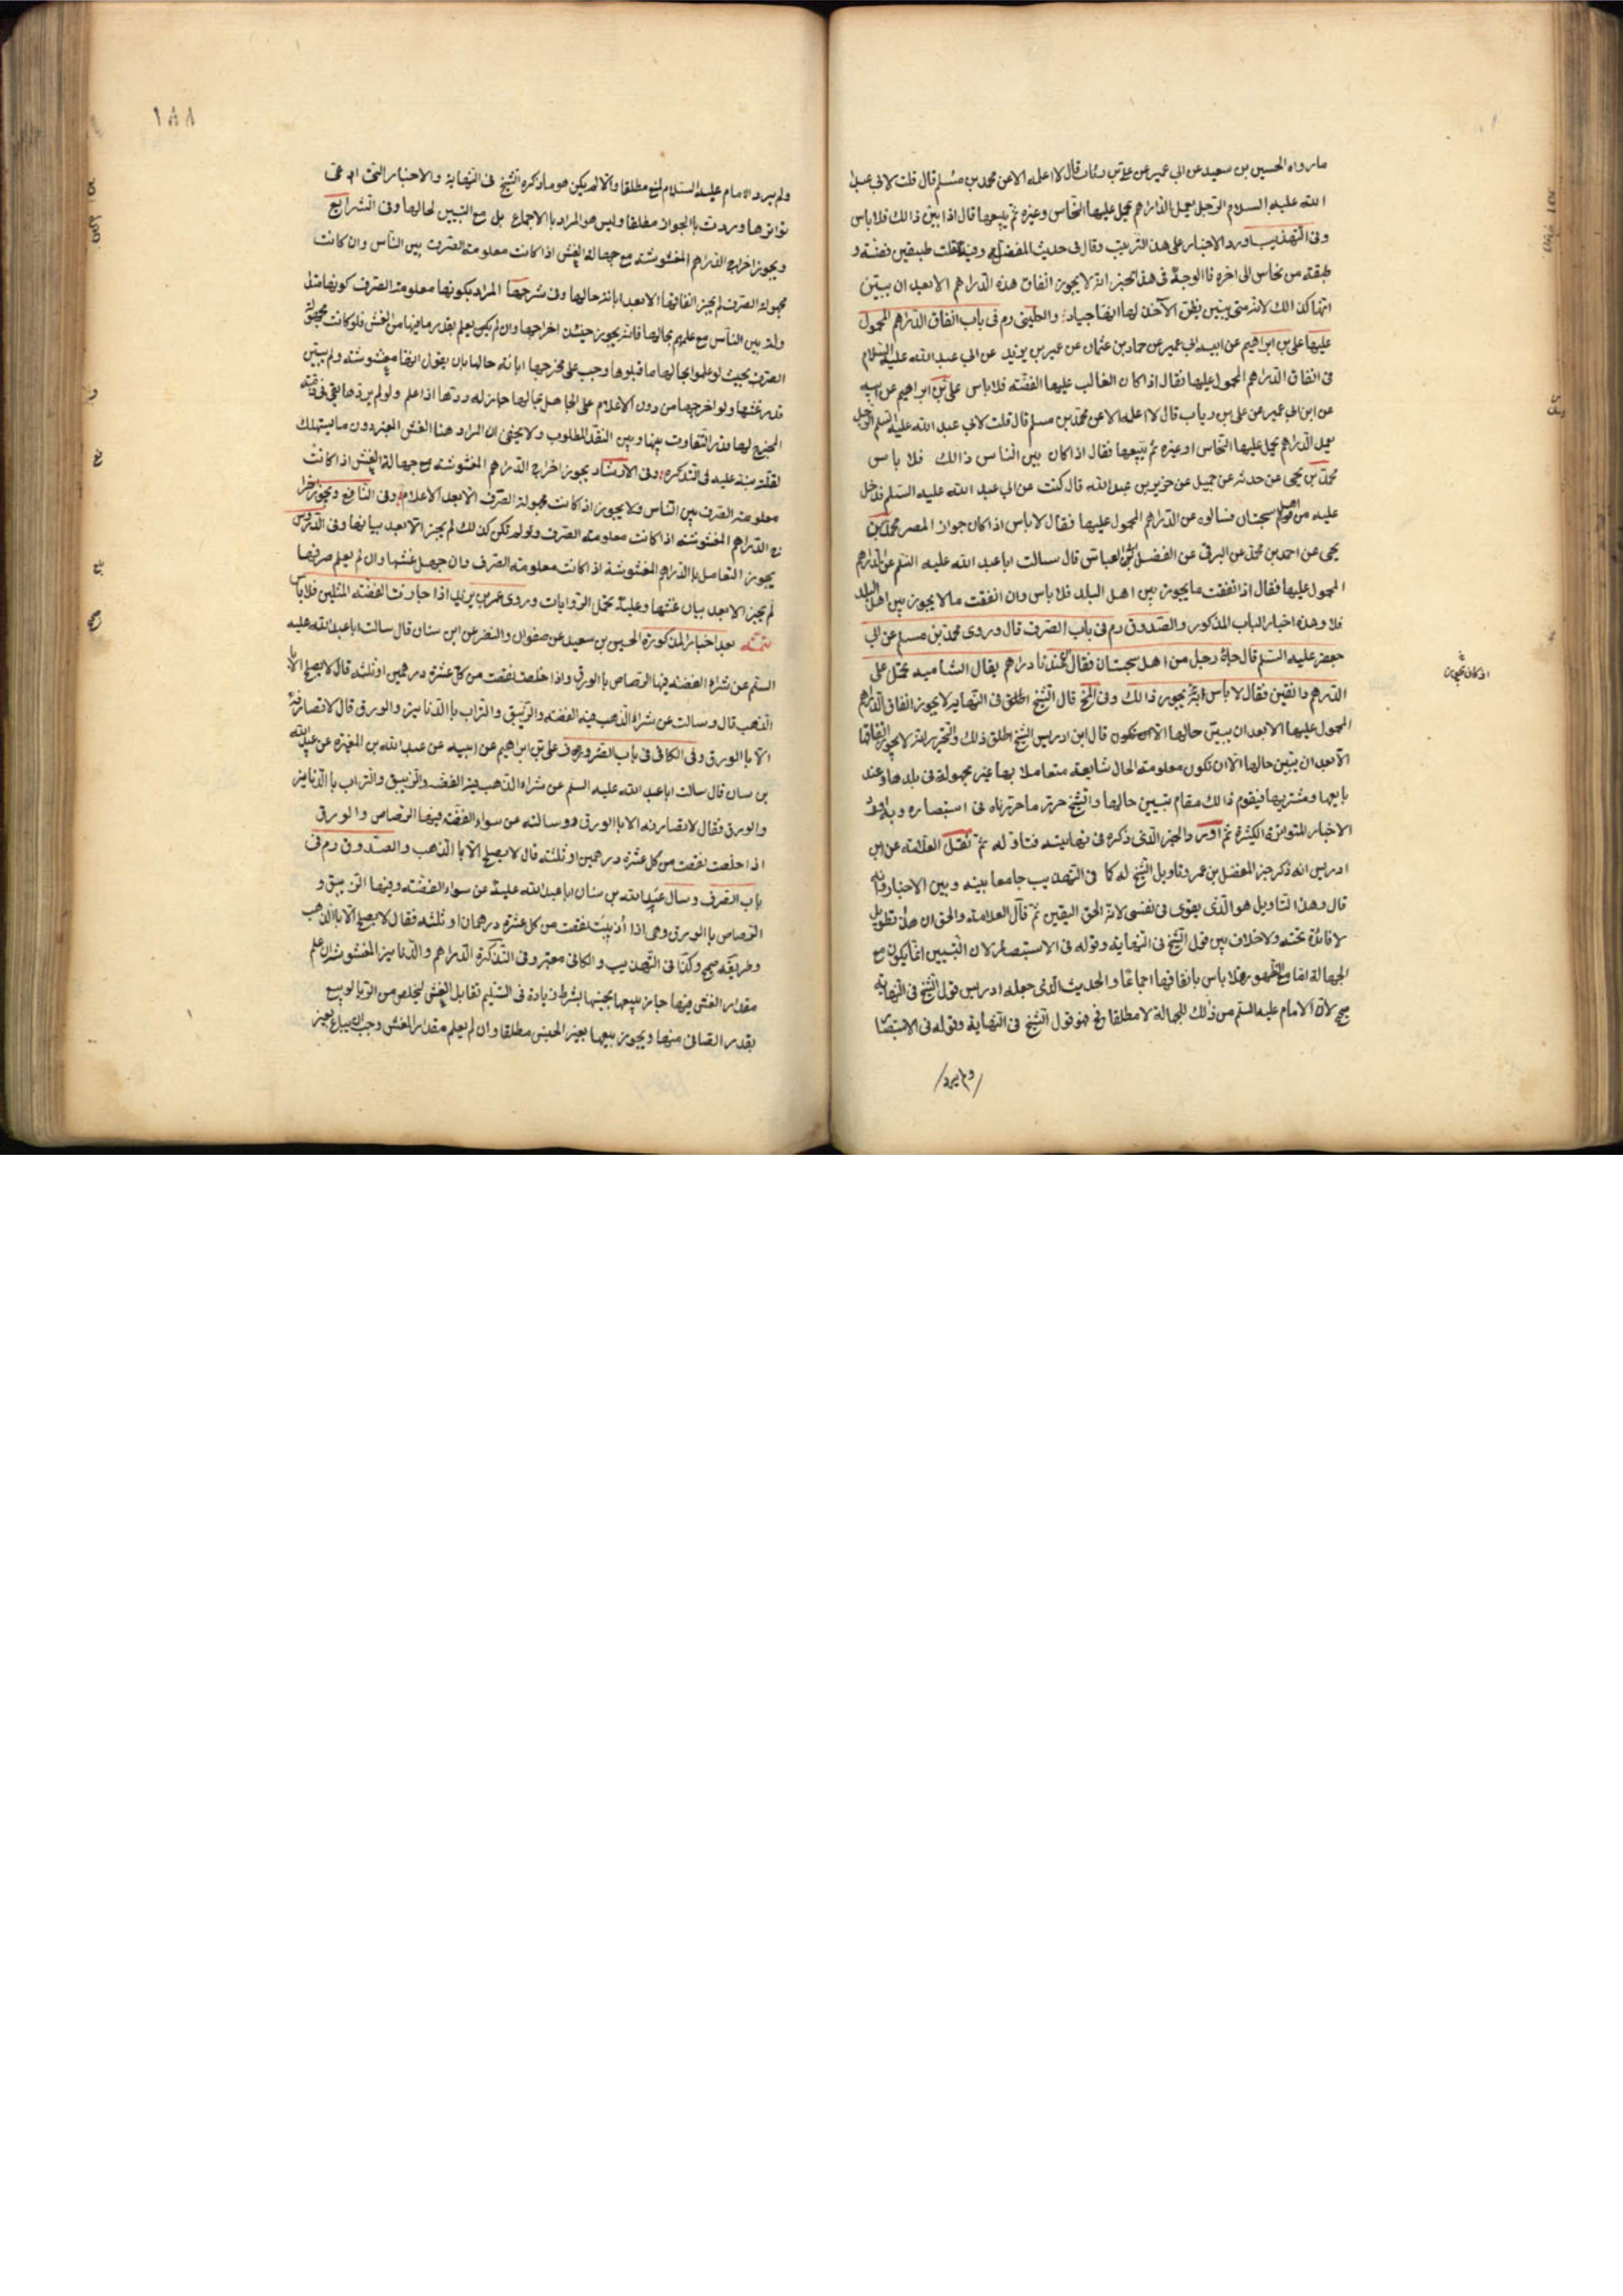 ما رواه الحسين بن سعيد عن ابي عمير عن علي بن رئاب قال لا اعلمه الا عن محمد بن مسلم قال قلت لابي عبد
الله عليه السلام الرجل يعمل الدراهم يحمل عليها النحاس وغيره ثم يبيعها قال اذا بين ذالك فلا باس
وفى التهذيب اورد الاخبار على هذا الترتيب وقال فى حديث المفضل طبقتين فضة و
طبقة من نحاس الى اخره فالوجه فى هذا الخبر انه لا يجوز انفاق هذه الدراهم الا بعد ان يبين
انها كذالك لانه متى يبين يظن الآخذ لها انها جياد والكلينى رم فى باب انفاق الدراهم المحمول
عليها على بن ابراهيم عن ابيه ابن ابي عمير عن حماد بن عثمان عن عمر بن يزيد عن ابي عبد الله عليه السلام
فى انفاق الدراهم المحمول عليها فقال اذا كان الغالب عليها الفضة فلا باس على بن ابراهيم عن ابيه
عن ابن ابي عمير عن على بن رياب قال لا اعلمه الا عن محمد بن مسلم قال قلت لابي عبد الله عليه السلم الرجل
يعمل الدراهم يحمل عليها النحاس او غيره ثم يبيعها فقال اذا كان بين الناس ذالك فلا باس
محمد بن يحيى عن حدثه عن جميل عن حريز بن عبد الله قال كنت عن ابي عبد الله عليه السلم فدخل
عليه من اهل سجستان فسالوه عن الدراهم المحمول عليها فقال لا باس اذا كان جواز المصر محمد بن
يحيى عن احمد بن محمد عن البرقى عن الفضل ابى العباس قال سالت ابا عبد الله عليه السلم عن الدراهم
المحمول عليها فقال اذا نفقت ما يجوز بين اهل البلد فلا باس وان انفقت ما لا يجوز بين اهل البلد
فلا وهذه اخبار الباب المذكور والصدوق رم فى باب الصرف قال وروى محمد بن مسلم عن ابي
جعفر عليه السلم قال جاءه رجل من اهل سجستان فقال عندنا دراهم يقال الشاميه تحمل على
الدرهم دانقين فقال لا باس به يجوز ذالك وفى المخ قال الشيخ اطلق فى النهايه لا يجوز انفاق الدراهم
المحمول عليها الا بعد ان يبين حالها قال ابن ادريس الشيخ اطلق ذلك والتحرير انه لا يجوز انفاقها
الا بعد ان يبين حالها الا ان تكون معلومة الحال شايعة متعاملا بها غير مجهولة فى بلدها وعند
بايعها ومشتريها فيقوم ذالك مقام تبيين حالها والشيخ حرر ما حررناه فى استبصاره
الاخبار المتواترة الكثيرة ثم اورد والخبر الذى ذكره فى نهايته فتاوله ثم نقل العلامة عن ابن
ادريس انه ذكر خبر المفضل بن عمر وتاويل الشيخ له كما فى التهذيب جامعا بينه وبين الاخبار
قال وهذا التاويل هو الذى يقوى فى نفسى لانه الحق اليقين ثم قال العلامة والحق ان هذا تطويل
لا فائدة تحته ولا خلاف بين قول الشيخ فى النهاية وقوله فى الاستبصار لان التبيين انما يكون مع
الجهالة اما مع الظهور فلا باس بانفاقها اجماعا والحديث الذى جعله ادريس قول الشيخ فى النهاية
صح لان الامام عليه السلم من ذلك للجهالة لا مطلقا وح فهو قول الشيخ فى النهاية وقوله فى الاستبصار
ولم يرد
١٨٨
ولم يرد الامام عليه السلام المنع مطلقا والا لم يكن هو ما ذكره الشيخ فى النهاية والاخبار التى ادعى
تواترها وردت بالجواز مطلقا وليس هو المراد بالاجماع بل مع التبيين لحالها وفى الشرايع
ويجوز اخراج الدراهم المغشوشة مع جهالة الغش اذا كانت معلومة الصرف بين الناس وان كانت
مجهولة الصرف لم يجز انفاقها الا بعد ابانة حالها وفى شرحها المراد بكونها معلومة الصرف كونها متدا
ولة بين الناس مع علمهم بحالها فانه يجوز حينئذ اخراجها وان لم يكن يعلم بقدر ما فيها من الغش فلو كانت مجهولة
الصرف بحيث لو علموا بحالها ما قبلوها وجب على مخرجها ابانة حالها بان يقول انها مغشوشة ولم يبين
قدر غشها ولو اخرجها من دون الاعلام على الجاهل بحالها جاز له ردها اذا علم ولو لم يردها بقى فى ذمة
المخرج لها قدر التفاوت بينها وبين النقد المطلوب ولا يخفى ان المراد هنا الغش المعتبر دون ما يستهلك
لقلته نبه عليه فى التذكره وفى الارشاد يجوز اخراج الدراهم المغشوشة مع جهالة الغش اذا كانت
معلومة الصرف بين الناس ولا يجوز اذا كانت مجهولة الصرف الا بعد الاعلام وفى النافع ويجوز اخرا
ج الدراهم المغشوشة اذا كانت معلومة الصرف ولو لم تكن كذلك لم يجز الا بعد بيانها وفى الدروس
يجوز التعامل بالدراهم المغشوشة اذا كانت معلومة الصرف وان جهل غشها وان لم يعلم صرفها
لم يجز الا بعد بيان غشها وعليه تحمل الروايات وروى عمر بن يزيد اذا جازت الفضة المثلين فلا باس
تتمة بعد اخبار المذكورة الحسين بن سعيد عن صفوان والنضر عن ابن سنان قال سالت ابا عبد الله عليه
السلم عن شراء الفضة فيها الرصاص بالورق واذا خلصت نقصت من كل عشرة درهمين او ثلثه قال لا يصلح الا با
الذهب قال وسالت عن شراء الذهب فيه الفضة والزيبق والتراب بالدنانير والورق قال لا تصارفه
الا بالورق وفى الكافى فى باب الصروف على بن ابراهيم عن ابيه عن عبد الله بن المغيرة عن عبد الله
بن سنان قال سالت ابا عبد الله عليه السلم عن شراء الذهب فيه الفضه والزيبق والتراب بالدنانير
والورق فقال لا تصارفه الا بالورق وسالته عن شراء الفضة فيها الرصاص والورق
اذا خلصت نقصت من كل عشرة درهمين او ثلثه قال لا يصلح الا بالذهب والصدوق رم فى
باب الصرف وسال عبد الله بن سنان ابا عبد الله عليه عن شراء الفضة وفيها الزيبق و
الرصاص بالورق وهى اذا اذيبت نقصت من كل عشرة درهمان او ثلثه فقال لا يصلح الا بالذهب
وطريقه صحيح وكذا فى التهذيب والكافى معتبر وفى التذكرة الدراهم والدنانير المغشوشة ان علم
مقدار الغش فيها جاز بيعها بجنسها بشرط زيادة فى السليم تقابل الغش ليخلص من الربا لو بيع
بقدر الصافى منها ويجوز بيعها بغير الجنس مطلقا وان لم يعلم مقدار الغش وجب ان يباع بغير